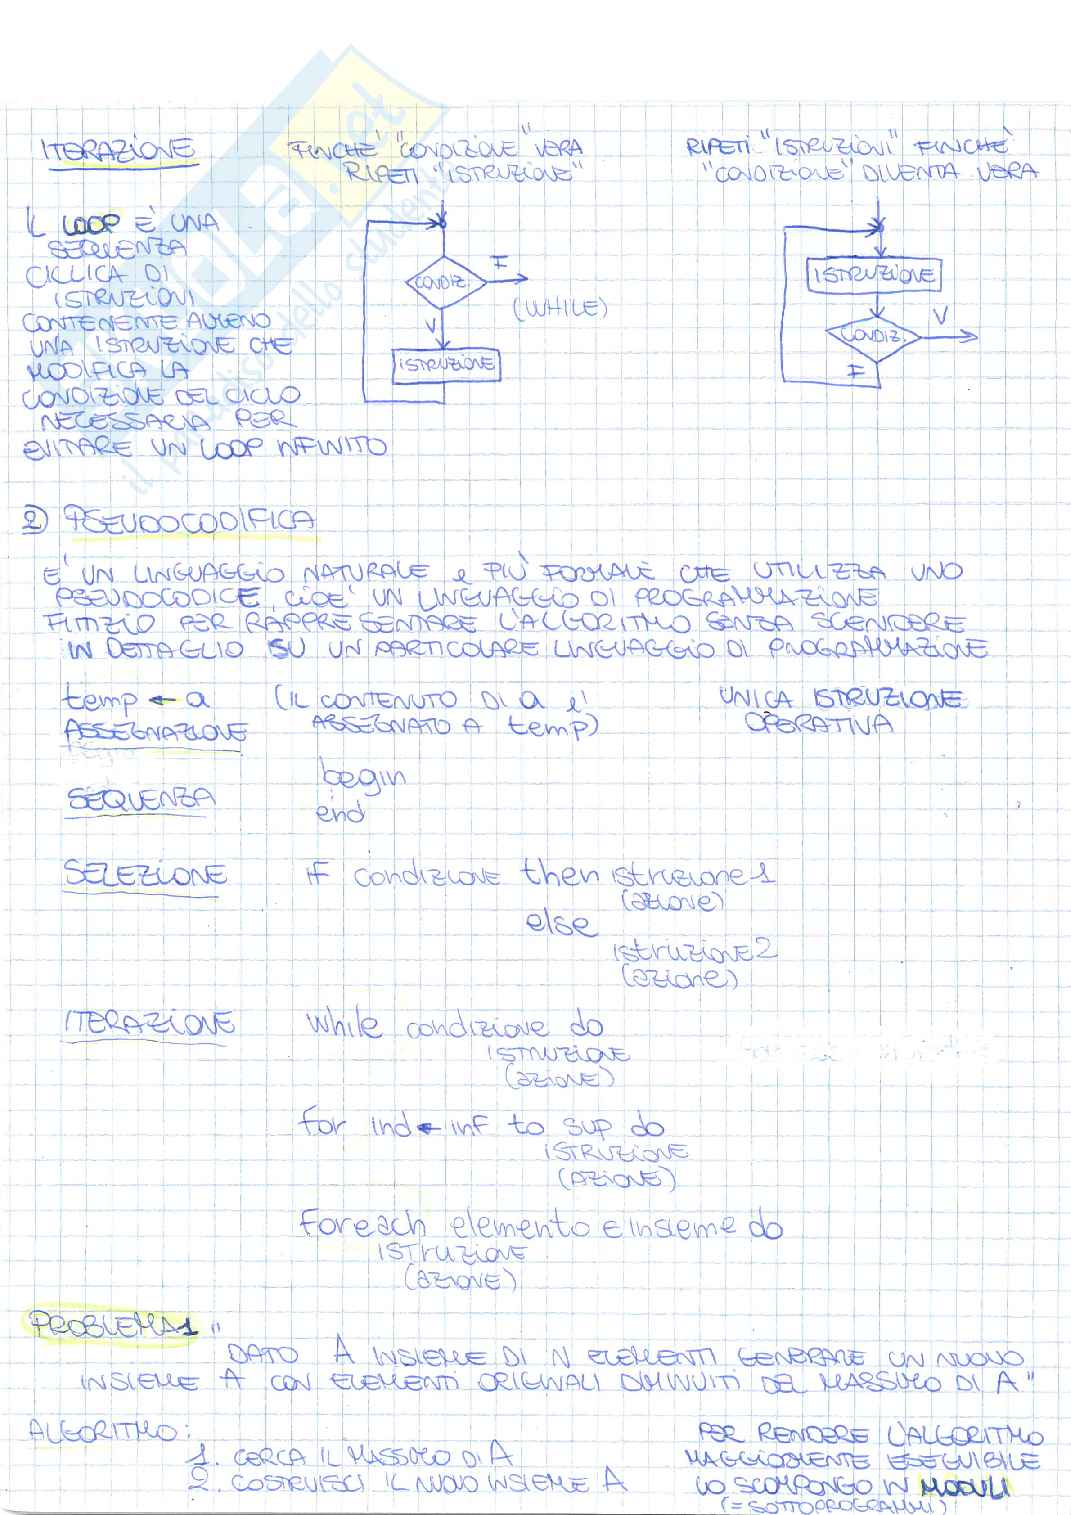 ITERAZIONE
FINCHÈ "CONDIZIONE" VERA
RIPETI "ISTRUZIONE"
RIPETI "ISTRUZIONI" FINCHÈ
"CONDIZIONE" DIVENTA VERA
IL LOOP E' UNA
SEQUENZA
CICLICA DI
ISTRUZIONI
CONTENENTE ALMENO
UNA ISTRUZIONE CHE
MODIFICA LA
CONDIZIONE DEL CICLO
NECESSARIA PER
EVITARE UN LOOP INFINITO
CONDIZ.
F
(WHILE)
V
ISTRUZIONE
ISTRUZIONE
CONDIZ.
V
F
2) PSEUDOCODIFICA
E' UN LINGUAGGIO NATURALE e PIÙ FORMALE CHE UTILIZZA UNO
PSEUDOCODICE, CIOE' UN LINGUAGGIO DI PROGRAMMAZIONE
FITTIZIO PER RAPPRESENTARE L'ALGORITMO SENZA SCENDERE
IN DETTAGLIO SU UN PARTICOLARE LINGUAGGIO DI PROGRAMMAZIONE
temp ← a (IL CONTENUTO DI a e' UNICA ISTRUZIONE
ASSEGNAZIONE ASSEGNATO A temp) OPERATIVA
begin
SEQUENZA
end
SELEZIONE if condizione then istruzione1
(azione)
else
istruzione2
(azione)
ITERAZIONE while condizione do
ISTRUZIONE
(azione)
for ind ← inf to sup do
ISTRUZIONE
(AZIONE)
foreach elemento ∈ insieme do
ISTRUZIONE
(azione)
PROBLEMA1 "
DATO A INSIEME DI N ELEMENTI GENERARE UN NUOVO
INSIEME A CON ELEMENTI ORIGINALI DIMINUITI DEL MASSIMO DI A"
ALGORITMO:
1. CERCA IL MASSIMO DI A
2. COSTRUISCI IL NUOVO INSIEME A
PER RENDERE L'ALGORITMO
MAGGIORMENTE ESEGUIBILE
LO SCOMPONGO IN MODULI
(= SOTTOPROGRAMMI)